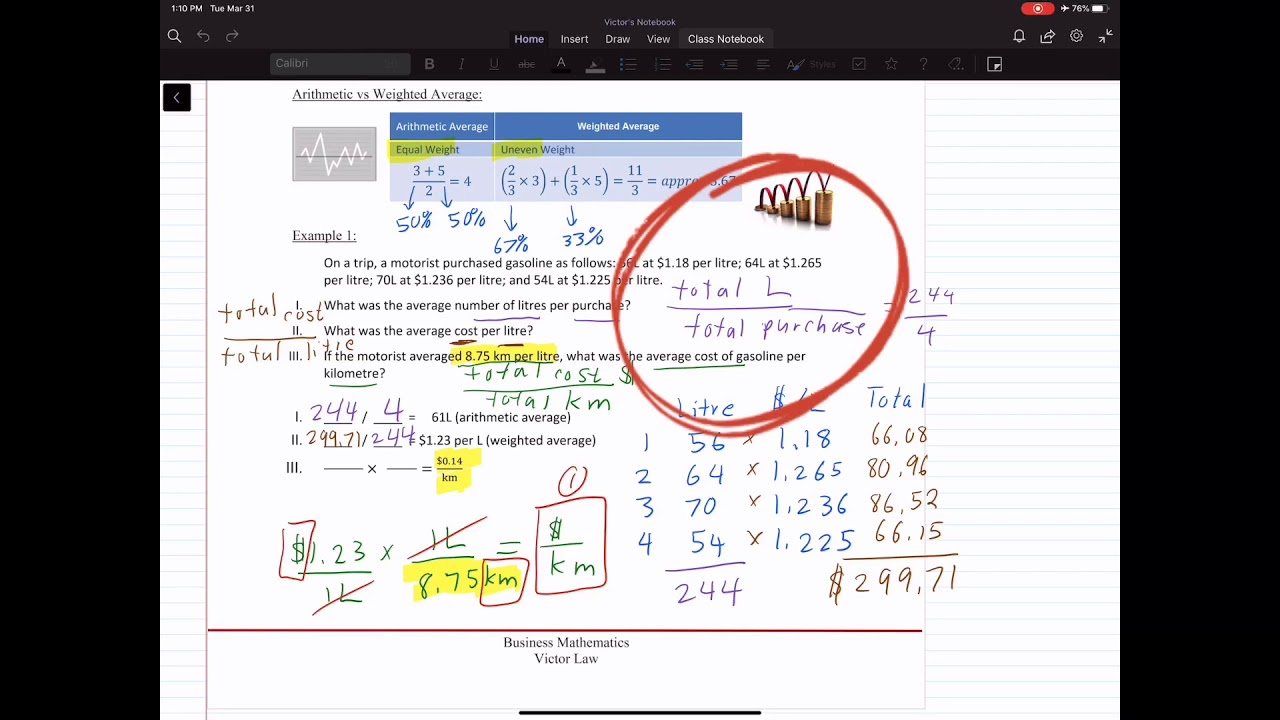 1:10 PM Tue Mar 31
76%
Victor's Notebook
Home Insert Draw View Class Notebook
Calibri
B I U abc A Styles ?
Arithmetic vs Weighted Average:
Arithmetic Average Weighted Average
Equal Weight Uneven Weight
(3 + 5)/2 = 4 (2/3 × 3) + (1/3 × 5) = 11/3 = appro 3.67
50% 50% 67% 33%
Example 1:
On a trip, a motorist purchased gasoline as follows: 56L at $1.18 per litre; 64L at $1.265
per litre; 70L at $1.236 per litre; and 54L at $1.225 per litre.
I. What was the average number of litres per purchase?
total L / total purchase = 244/4
II. What was the average cost per litre?
total cost / total litre
III. If the motorist averaged 8.75 km per litre, what was the average cost of gasoline per
kilometre?
total cost $ / total km
I. 244 / 4 = 61L (arithmetic average)
II. 299.71 / 244 = $1.23 per L (weighted average)
III. ____ × ____ = $0.14/km
$1.23/1L × 1L/8.75 km = $/km
1
Litre $/L Total
1 56 × 1.18 66.08
2 64 × 1.265 80.96
3 70 × 1.236 86.52
4 54 × 1.225 66.15
244 $299.71
Business Mathematics
Victor Law